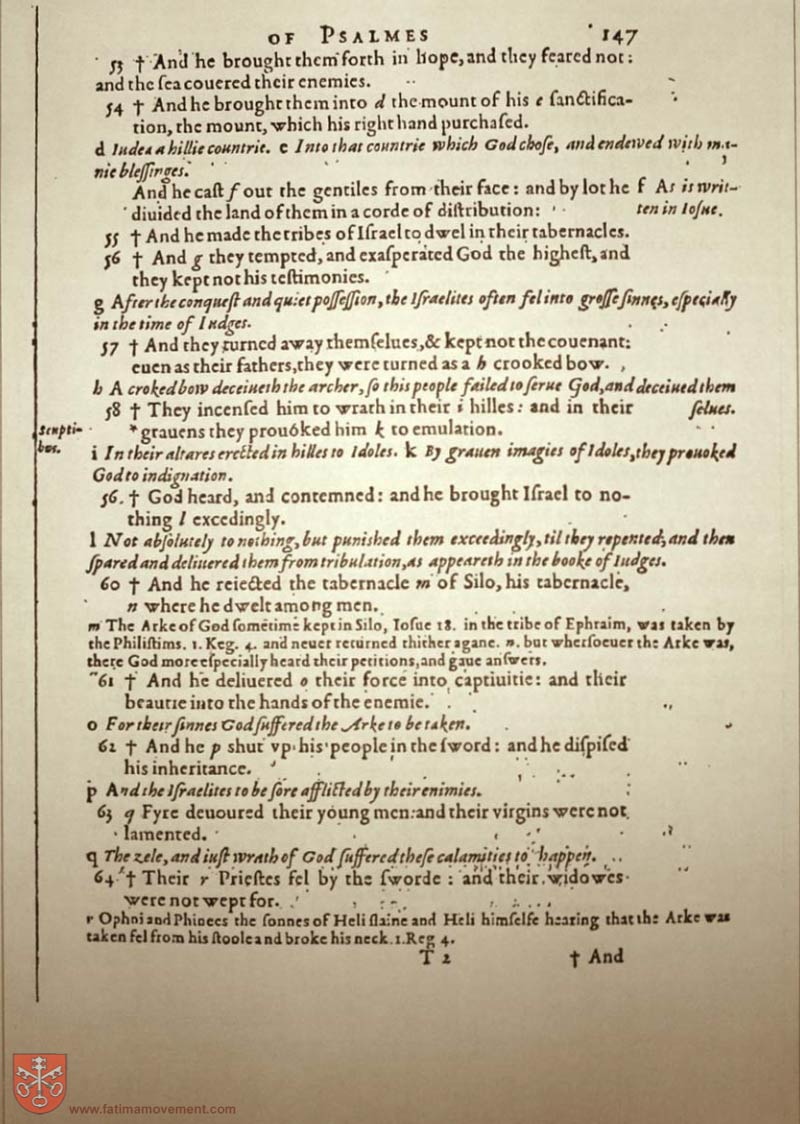 OF PSALMES 147
53 † And he brought them forth in hope, and they feared not:
and the ſea couered their enemies.
54 † And he brought them into d the mount of his e ſanctifica-
tion, the mount, which his right hand purchaſed.
d Iudea a hillie countrie. e Into that countrie which God choſe, and endewed with ma-
nie bleſſinges.
And he caſt f out the gentiles from their face: and by lot he f As is writ-
diuided the land of them in a corde of diſtribution: ten in Ioſue.
55 † And he made the tribes of Iſrael to dwel in their tabernacles.
56 † And g they tempted, and exaſperated God the higheſt, and
they kept not his teſtimonies.
g After the conqueſt and quiet poſſeſſion, the Iſraelites often fel into groſſe ſinnes, eſpecially
in the time of Iudges.
57 † And they turned away themſelues, & kept not the couenant:
euen as their fathers, they were turned as a h crooked bow.
h A croked bow deceiueth the archer, ſo this people failed to ſerue God, and deceiued them
58 † They incenſed him to wrath in their i hilles: and in their ſelues.
*grauens they prouóked him k to emulation.
ſculpti-
bus.
i In their altares erected in hilles to Idoles. k By grauen imagies of Idoles, they prouoked
God to indignation.
56. † God heard, and contemned: and he brought Iſrael to no-
thing l excedingly.
l Not abſolutely to nothing, but punished them exceedingly, til they repented; and then
ſpared and deliuered them from tribulation, as appeareth in the booke of Iudges.
60 † And he reiected the tabernacle m of Silo, his tabernacle,
n where he dwelt among men.
m The Arke of God ſometime kept in Silo, Ioſue 18. in the tribe of Ephraim, was taken by
the Philiſtims. 1. Reg. 4. and neuer returned thither agane. n. but wherſoeuer the Arke was,
there God more eſpecially heard their petitions, and gaue anſwers.
61 † And he deliuered o their force into captiuitie: and their
beautie into the hands of the enemie.
o For their ſinnes God ſuffered the Arke to be taken.
62 † And he p shut vp his people in the ſword: and he diſpiſed
his inheritance.
p And the Iſraelites to be ſore afflicted by their enimies.
63 q Fyre deuoured their young men: and their virgins were not
lamented.
q The zele, and iuſt wrath of God ſuffered theſe calamities to happen.
64 † Their r Prieſtes fel by the ſworde: and their widowes
were not wept for.
r Ophni and Phinees the ſonnes of Heli ſlaine and Heli himſelfe hearing that the Arke was
taken fel from his ſtoole and broke his neck. 1. Reg 4.
T 2 † And
www.fatimamovement.com